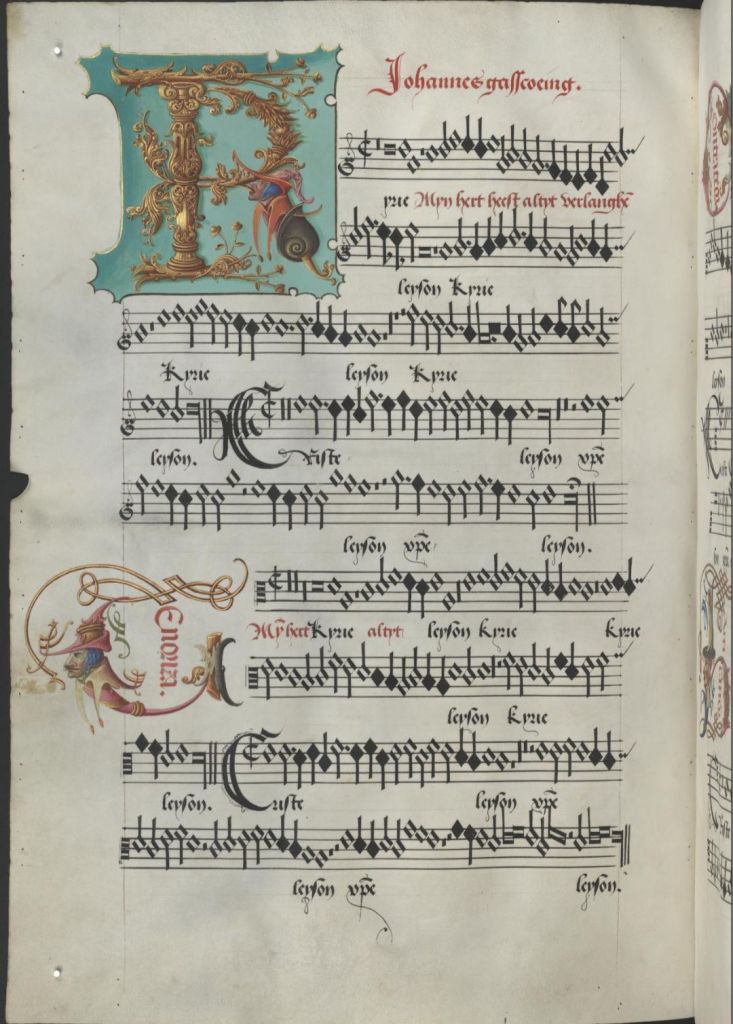 Johannes gasscoeing.
K yrie Myn hert heeft altyt verlanghē
leyson Kyrie
Kyrie leyson Kyrie
leyson. Christe leyson xpē
leyson xpē leyson.
Tenor
Mȳ hert Kyrie altyt leyson kyrie kyrie
leyson kyrie
leyson. Criste leyson xpē
leyson xpē leyson.